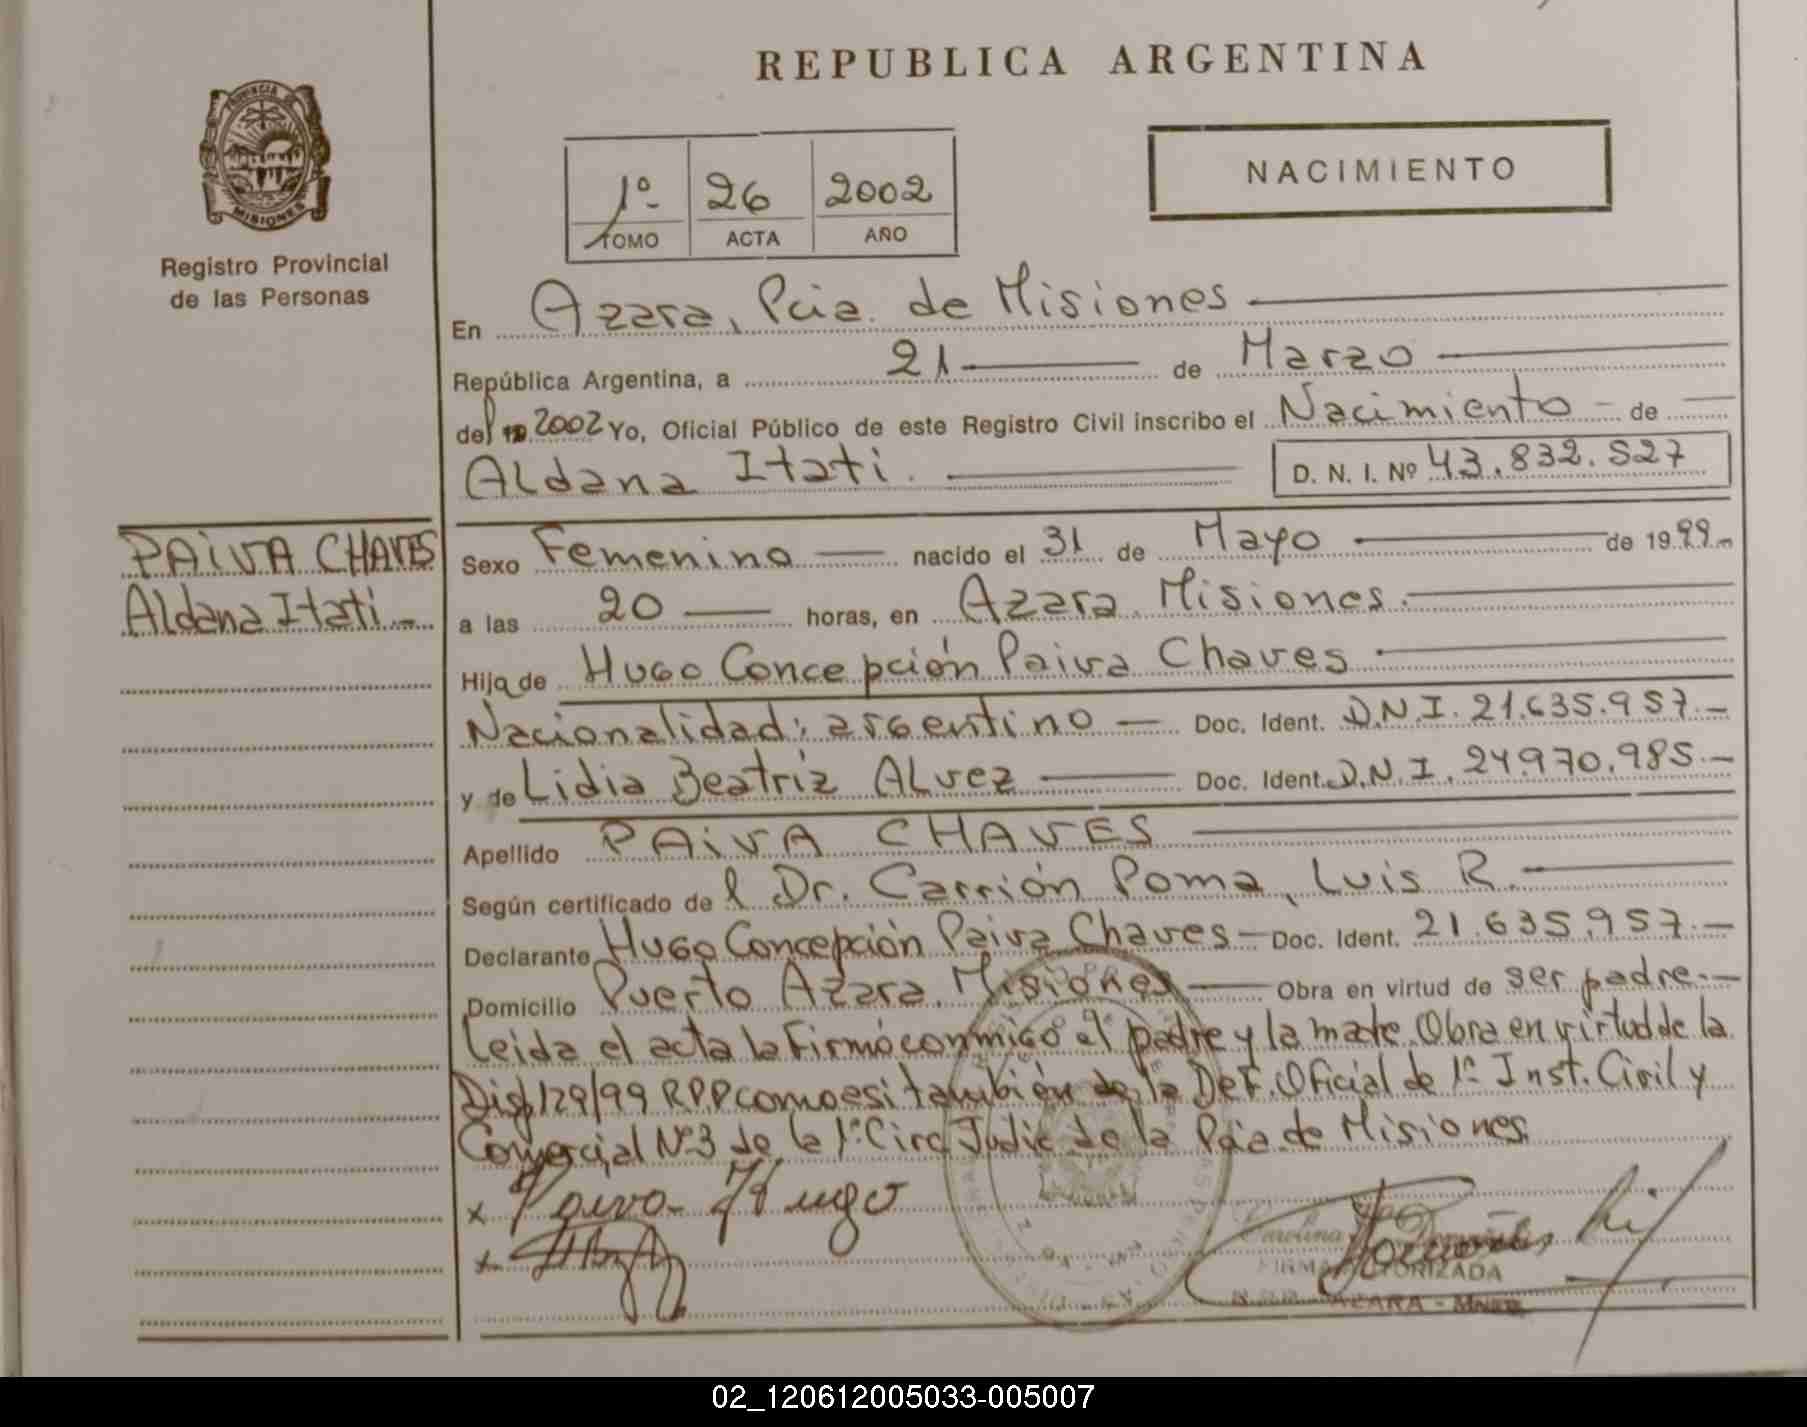 REPUBLICA ARGENTINA
PROVINCIA DE
MISIONES
Registro Provincial
de las Personas
1º 26 2002
TOMO ACTA AÑO
NACIMIENTO
En Azara, Pcia. de Misiones
República Argentina, a 21 de Marzo
del 2002 Yo, Oficial Público de este Registro Civil inscribo el Nacimiento de
Aldana Itati. D. N. I. Nº 43.832.527
PAIVA CHAVES
Aldana Itati
Sexo Femenino nacido el 31 de Mayo de 1999
a las 20 horas, en Azara. Misiones.
Hija de Hugo Concepción Paiva Chaves
Nacionalidad: argentino Doc. Ident. D.N.I. 21.635.957.
y de Lidia Beatriz Alvez Doc. Ident. D.N.I. 24.970.985.
Apellido PAIVA CHAVES
Según certificado del Dr. Carrión Poma, Luis R.
Declarante Hugo Concepción Paiva Chaves Doc. Ident. 21.635.957.
Domicilio Puerto Azara. Misiones Obra en virtud de ser padre.
Leida el acta la Firmó conmigo el padre y la madre. Obra en virtud de la
Disp 129/99 RPP como asi también de la Def. Oficial de 1º Inst. Civil y
Comercial Nº3 de la 1º Circ Judic de la Pcia. de Misiones.
x Paiva Hugo
x
Carolina
FIRMA AUTORIZADA
AZARA - MNES
02_120612005033-005007